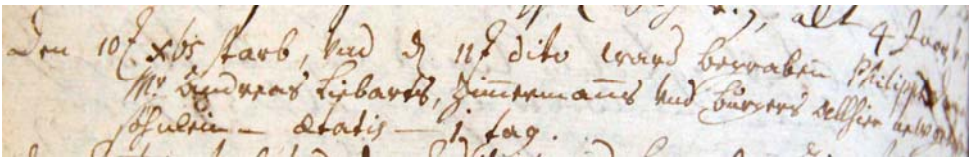 alt 4 Jaar
Den 10t. xbs starb, Vnd d 11t dito ward begraben Philipp
Mr Andreas Liebarts, Zimmermanns Vnd burgers allhier
söhnlein – ætatis – 1. tag.